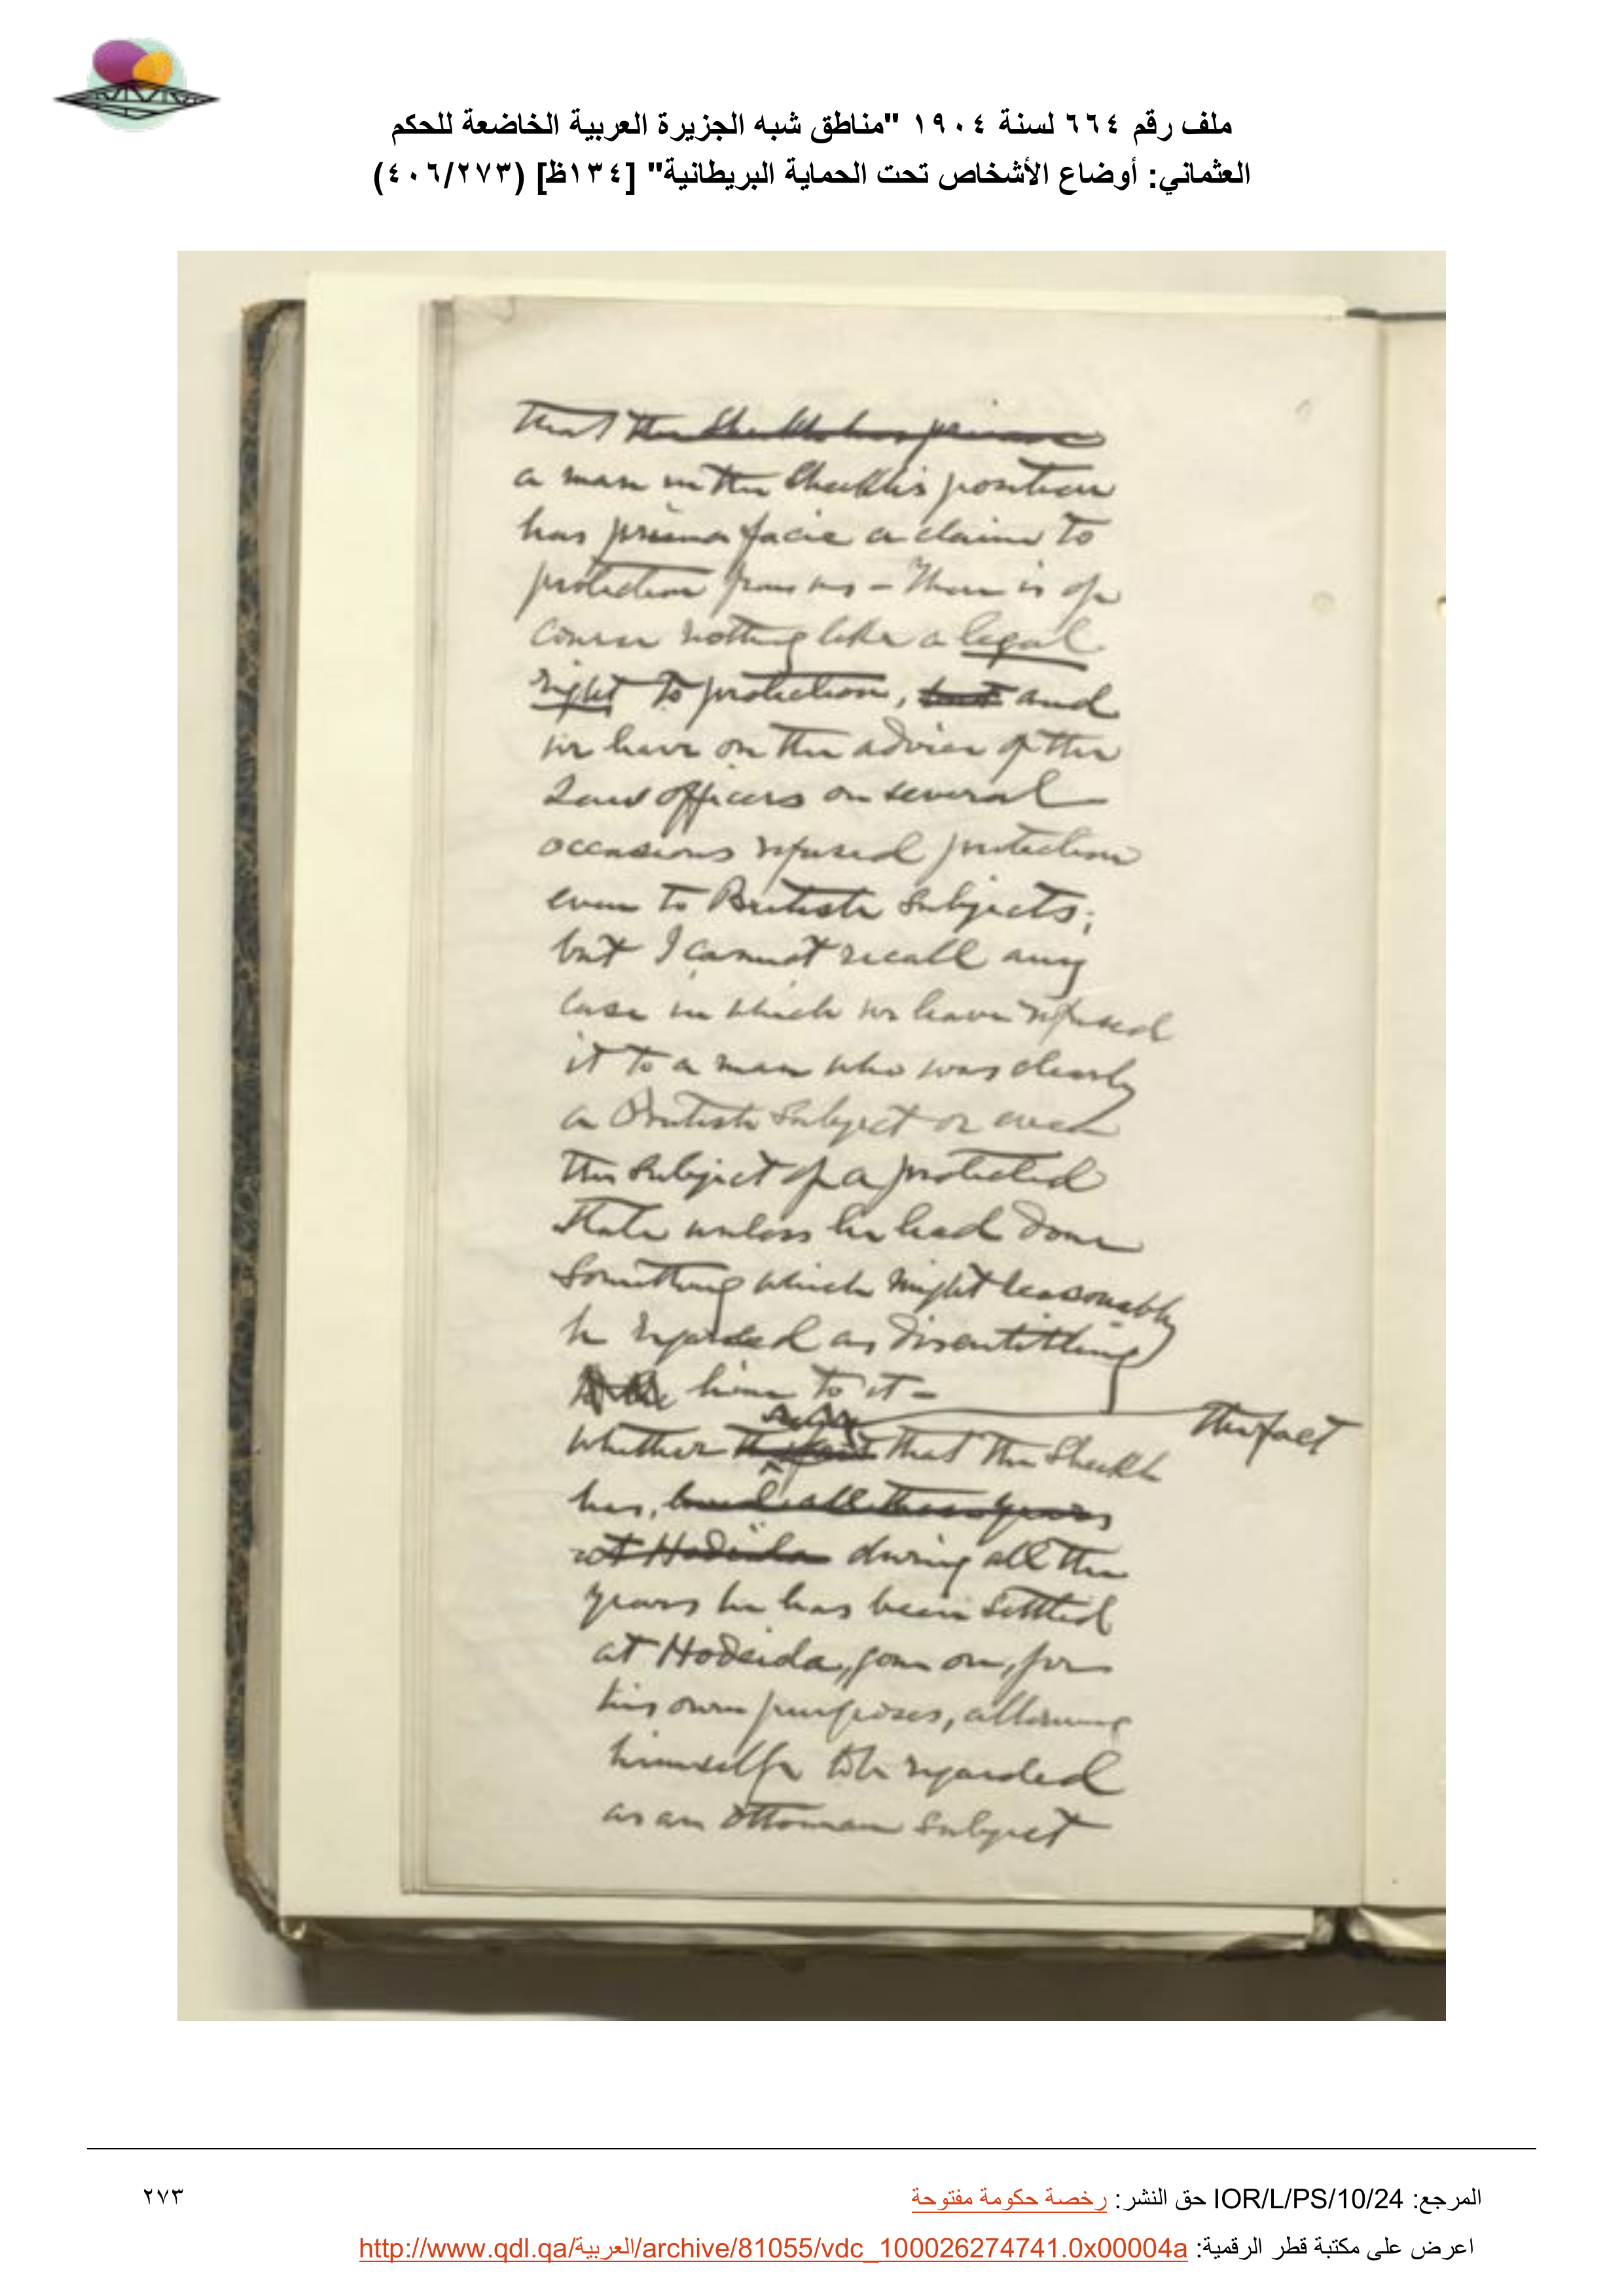 ملف رقم ٦٦٤ لسنة ١٩٠٤ "مناطق شبه الجزيرة العربية الخاضعة للحكم
العثماني: أوضاع الأشخاص تحت الحماية البريطانية" [١٣٤ظ] (٤٠٦/٢٧٣)
that the Sheikh has prima
a man in the Sheikh's position
has prima facie a claim to
protection from us - There is of
course nothing like a legal
right to protection, but and
we have on the advice of the
Law officers on several
occasions refused protection
even to British Subjects;
but I cannot recall any
case in which we have refused
it to a man who was clearly
a British Subject or even
the subject of a protected
State unless he had done
something which might reasonably
be regarded as disentitling
him to it -
the fact
whether the fact that the Sheikh
has, lived all these years
at Hodeida during all the
years he has been settled
at Hodeida, gone on, for
his own purposes, allowing
himself to be regarded
as an Ottoman Subject
المرجع: IOR/L/PS/10/24 حق النشر: رخصة حكومة مفتوحة
٢٧٣
اعرض على مكتبة قطر الرقمية: http://www.qdl.qa/العربية/archive/81055/vdc_100026274741.0x00004a